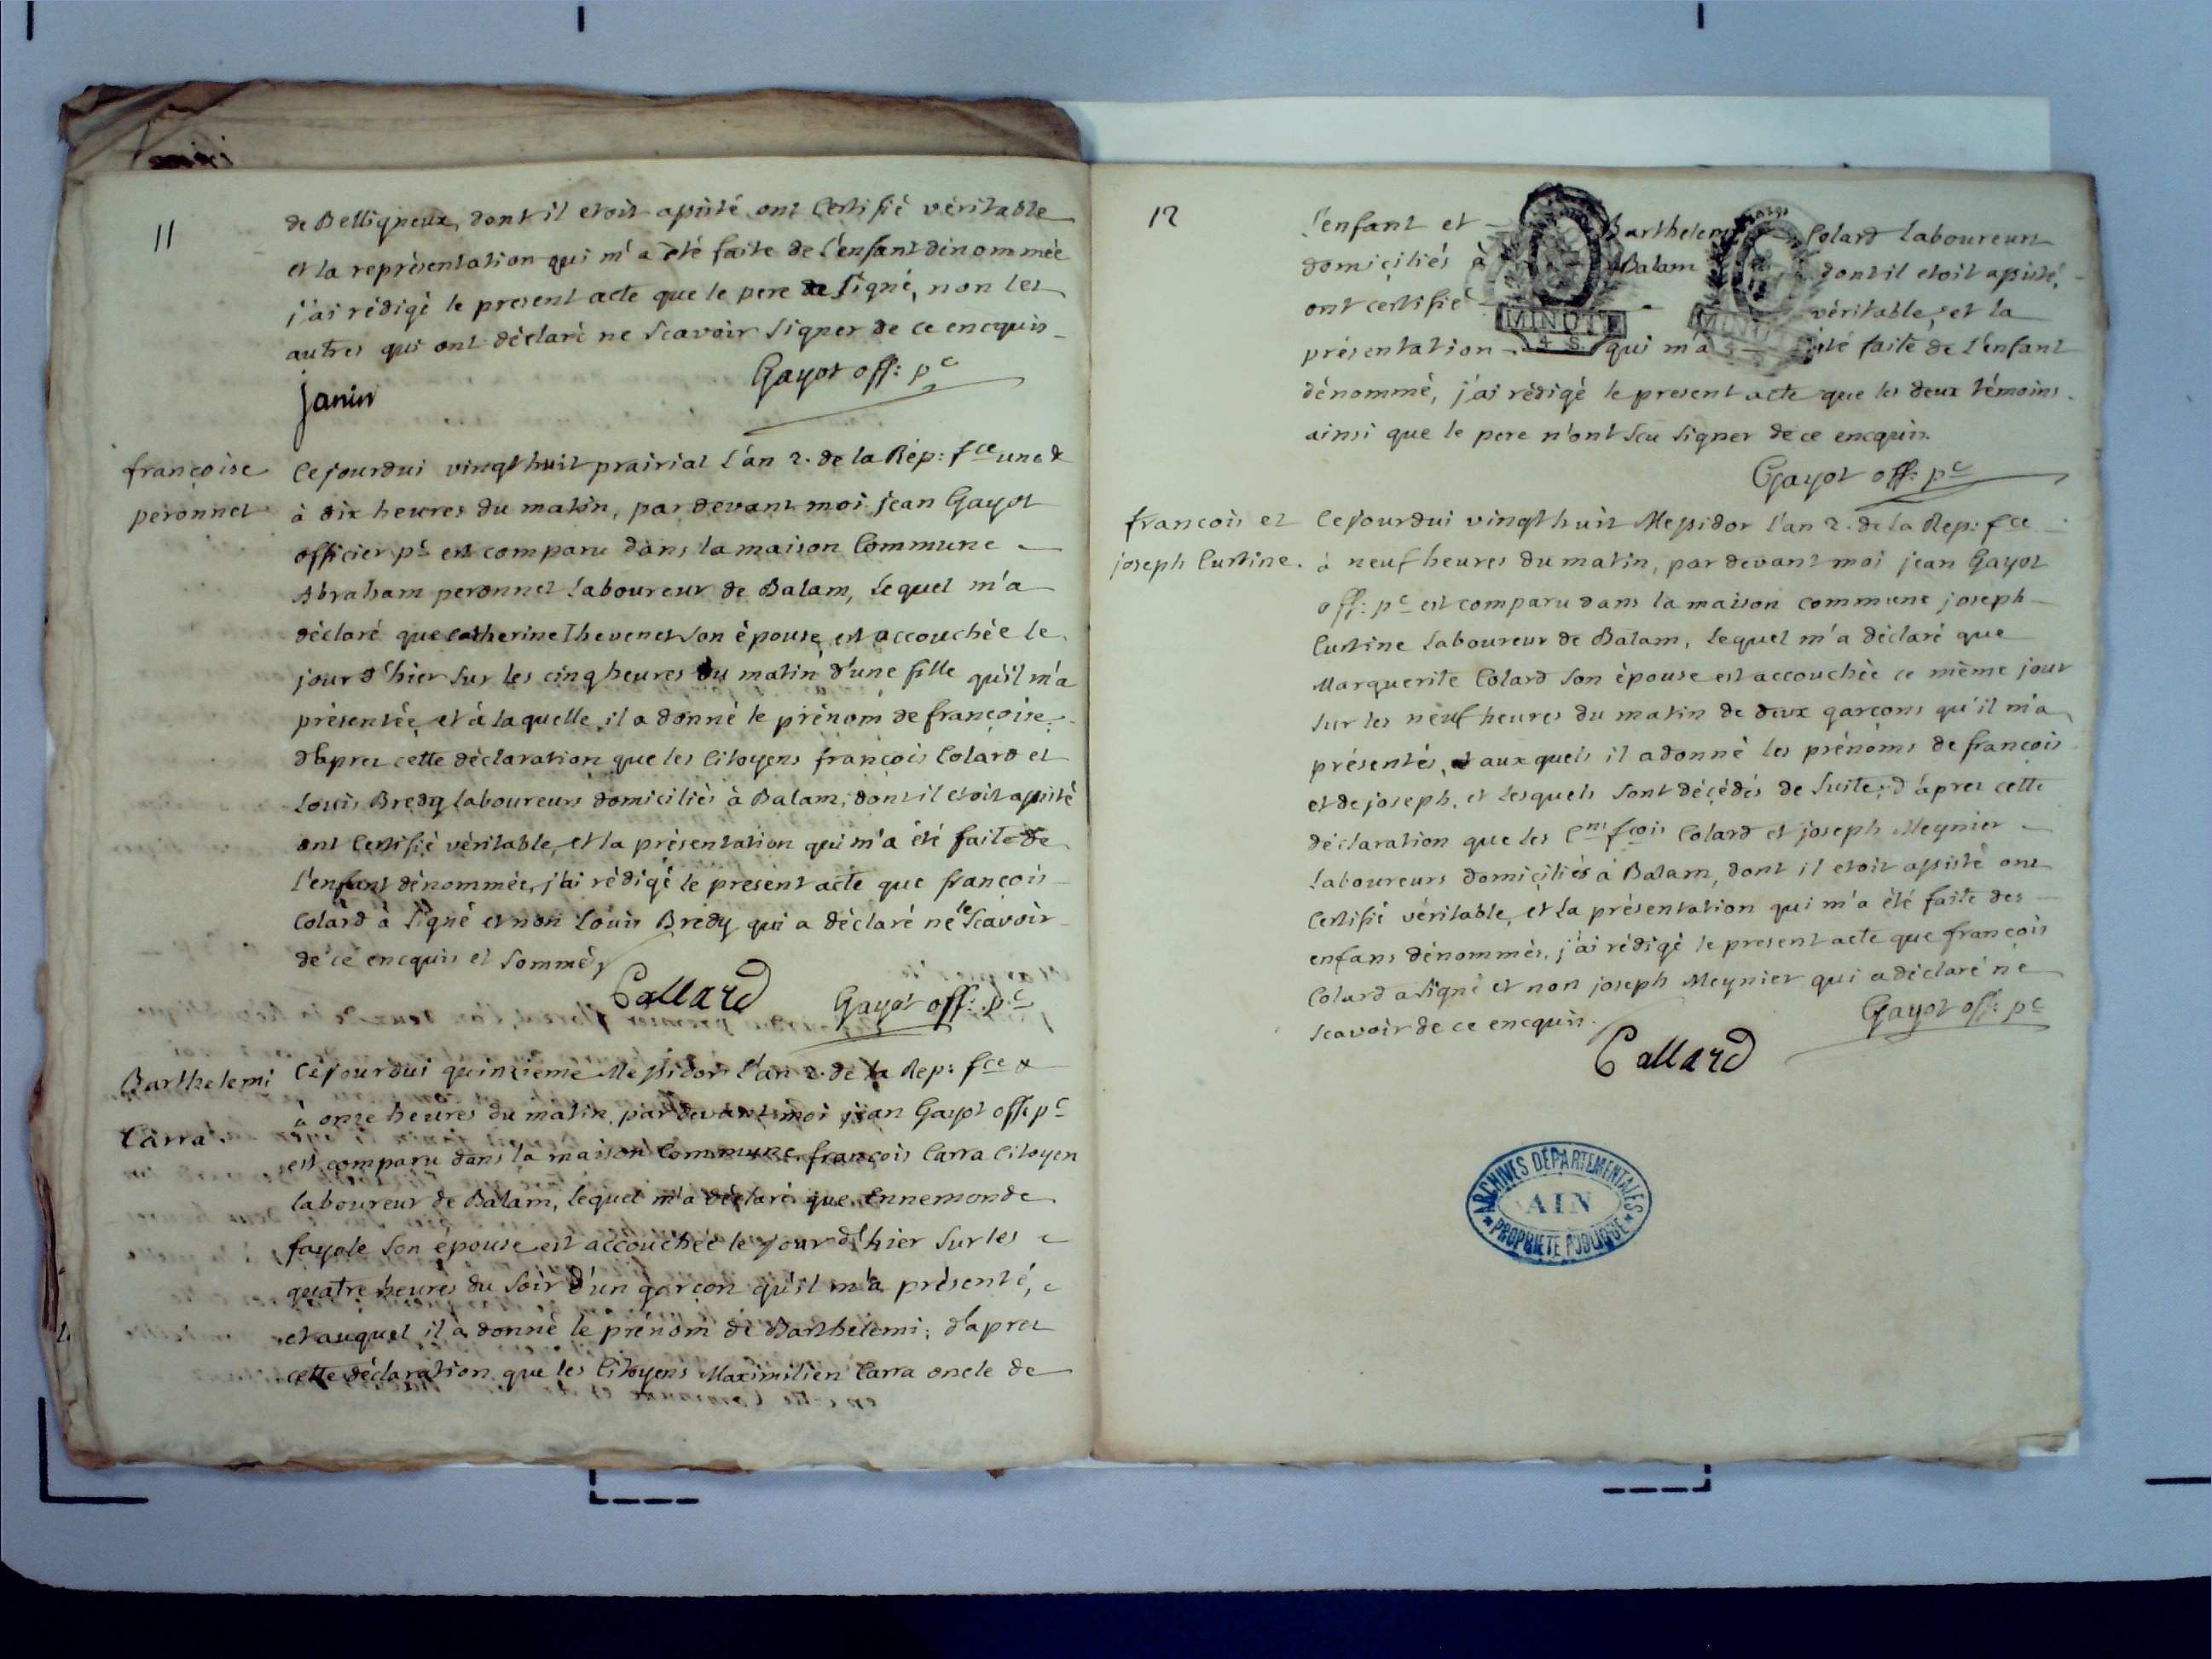 11
de Belligneux, dont il etoit assisté ont certifié véritable
et la représentation qui m'a été faite de l'enfant dénommée
j'ai rédigé le present acte que le pere a signé, non les
autres qui ont déclaré ne scavoir signer de ce encquis
janin
Gayot off: pc
françoise
peronnet
Cejourdui vingt huit prairial l'an 2. de la Rép: fce une &
à dix heures du matin, par devant moi jean Gayot
officier pc est comparu dans la maison Commune
Abraham peronnet laboureur de Balam, lequel m'a
déclaré que catherine Thevenet son épouse est accouchée le
jour d'hier sur les cinq heures du matin d'une fille qu'il m'a
présentée, et à laquelle il a donné le prénom de françoise,
d'apres cette déclaration que les Citoyens françois Colard et
Louis Bredy laboureurs domiciliés à Balam, dont il etoit assisté
ont certifié véritable, et la présentation qui m'a été faite de
l'enfant dénommée, j'ai rédigé le present acte que françois
Colard à signé et non Louis Bredy qui a déclaré ne le scavoir
de ce encquis et sommé
Collard
Gayot off: pc
Barthelemi
Carra.
Cejourdui quinzieme Messidor l'an 2. de la Rep: fce &
à onze heures du matin, par devant moi jean Gayot off: pc
est comparu dans la maison Commune françois Carra Citoyen
laboureur de Balam, lequel m'a déclaré que Ennemonde
fayole son épouse est accouchée le jour d'hier sur les
quatre heures du soir d'un garcon qu'il m'a présenté,
et auquel il a donné le prénom de Barthelemi; d'apres
cette déclaration que les Citoyens Maximilien Carra oncle de
12
l'enfant et Barthelemi Colard laboureurs
domiciliés à Balam dont il etoit assisté,
ont certifié véritable, et la
présentation qui m'a été faite de l'enfant
dénommé, j'ai rédigé le present acte que les deux témoins
ainsi que le pere n'ont scu signer de ce encquis.
MINUTE
4 S.
MINUTE
Gayot off: pc
francois et
joseph Curtine.
Cejourdui vingt huit Messidor l'an 2. de la Rep: fce
à neuf heures du matin, par devant moi jean Gayot
off: pc est comparu dans la maison commune joseph
Curtine laboureur de Balam, lequel m'a déclaré que
Marguerite Colard son épouse est accouchée ce même jour
sur les neuf heures du matin de deux garcons qu'il m'a
présentés, et auxquels il a donné les prénoms de francois
et de joseph, et lesquels sont décédés de suite, d'apres cette
déclaration que les Cns fcois Colard et joseph Meynier
laboureurs domiciliés à Balam, dont il etoit assisté ont
certifié véritable, et la présentation qui m'a été faite des
enfans dénommés, j'ai rédigé le present acte que francois
Colard a signé et non joseph Meynier qui a déclaré ne
scavoir de ce encquis.
Gayot off: pc
Collard
ARCHIVES DÉPARTEMENTALES
AIN
PROPRIÉTÉ PUBLIQUE